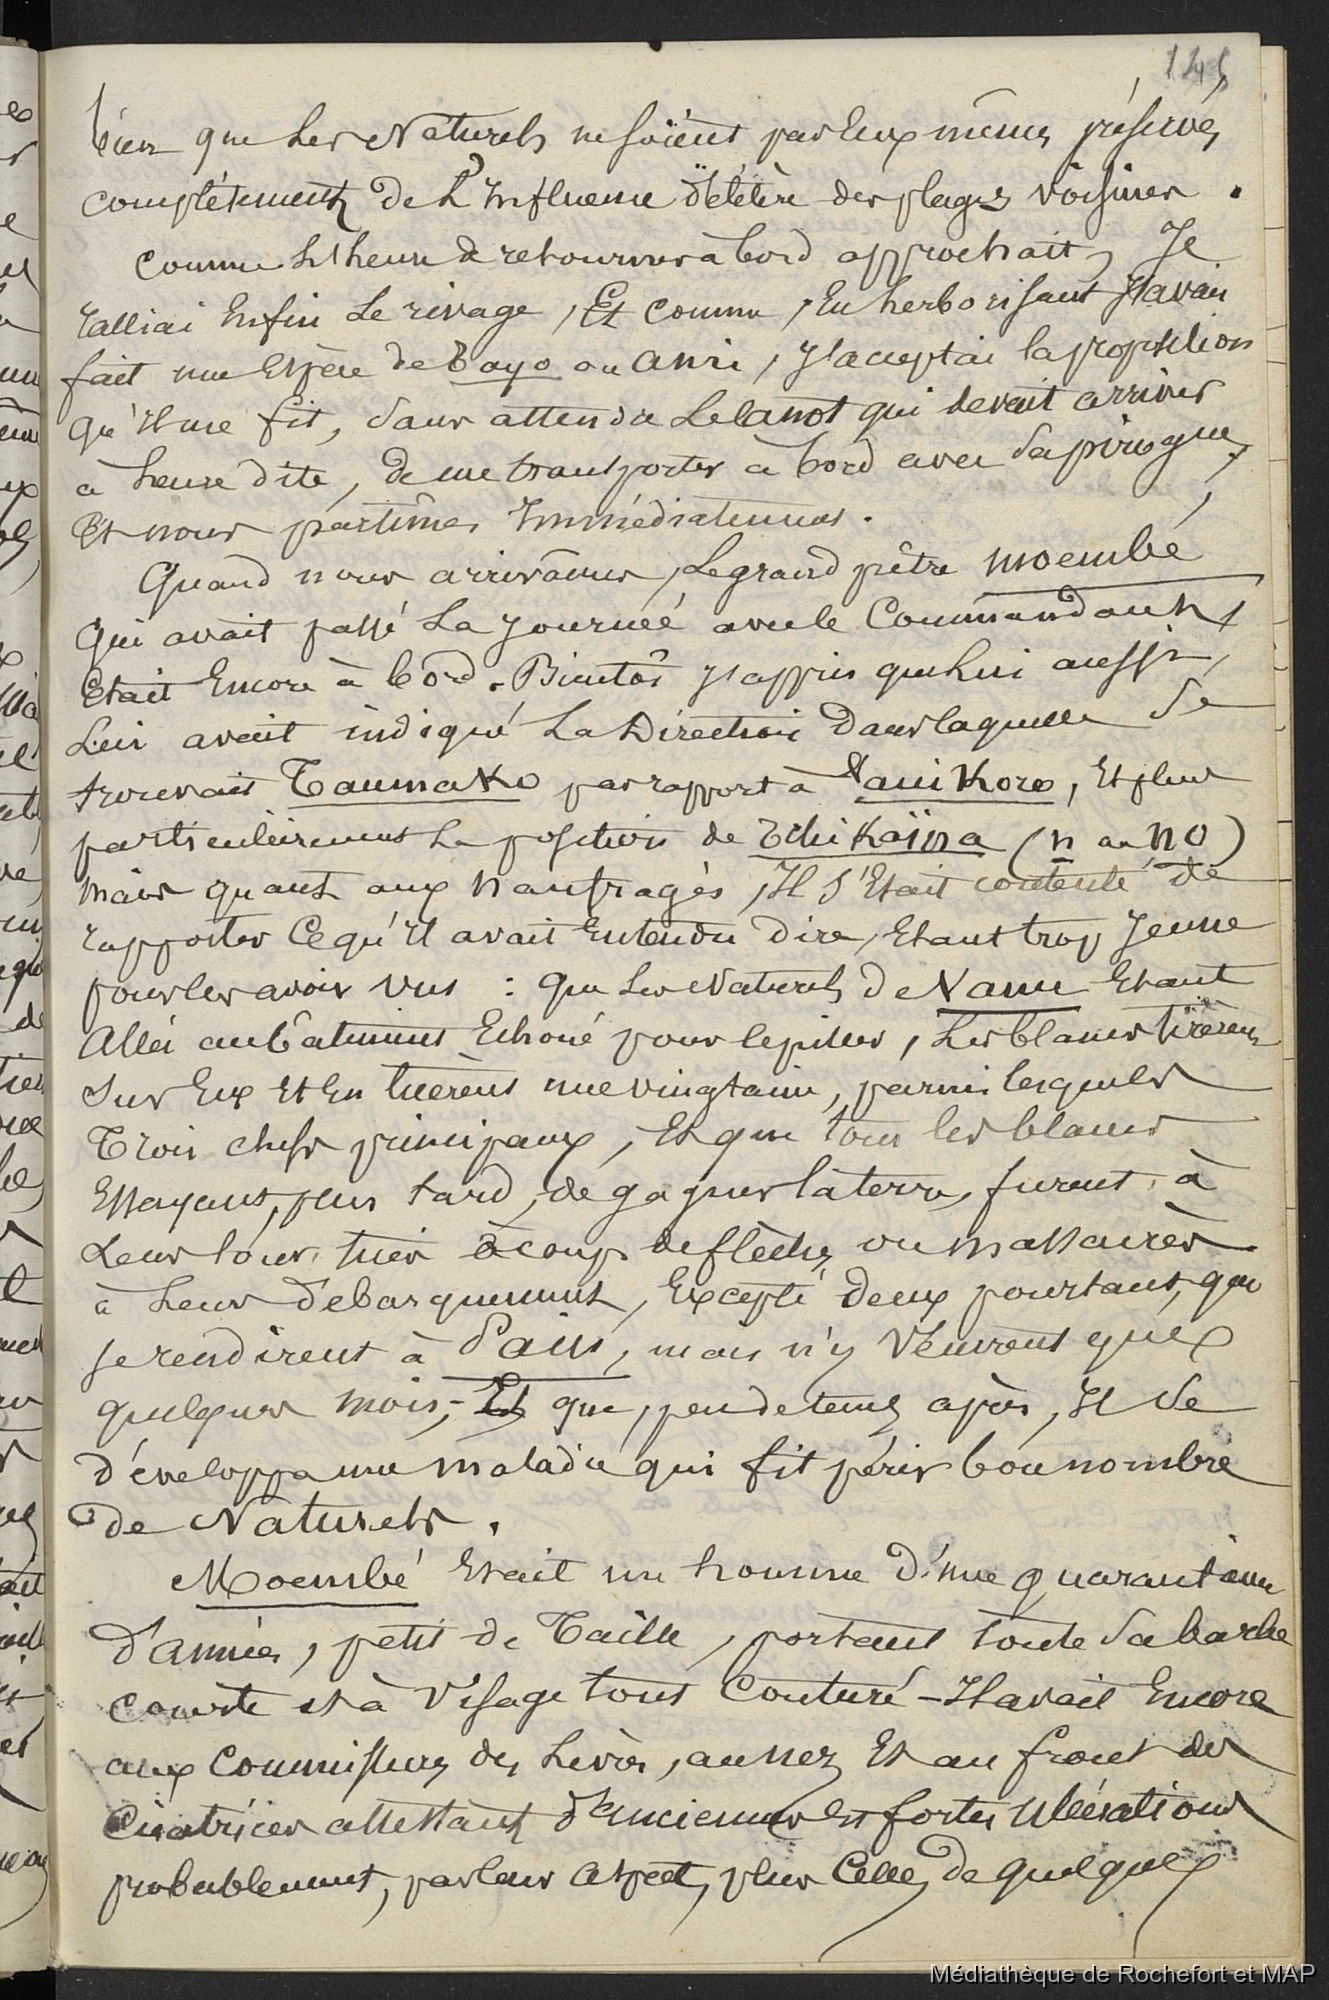 145
bien que les Naturels ne soïent pas Eux mêmes préservés
complétement de L'Influence délétère des plages voisines.
Comme L'heure de retourner à bord approchait, Je
ralliai Enfin Le rivage, Et comme, En herborisant J'avais
fait une Espèce de Tayo ou ami, J'acceptai la proposition
qu'Il me fit, Sans attendre Le Canot qui devait arriver
à heure dite, de me transporter à bord avec Sa pirogue,
Et nous partîmes Immédiatement.
Quand nous arrivâmes, Le grand prêtre Moembé
Qui avait passé La Journée avec le Commandant,
Etait Encore à bord. Bientôt J'appris que Lui aussi,
Lui avait indiqué La Direction dans laquelle Se
trouvait Taumako par rapport à Vanikoro, Et plus
particulièrement La position de Tchikaïna (n au NO)
Mais quant aux Naufragés, Il S'Etait contenté de
rapporter Ce qu'Il avait Entendu dire, Etant trop Jeune
pour les avoir vus : Que Les Naturels de Vanu Etant
Allés au bâtiment Echoué pour le piller, Les blancs tirèrent
Sur Eux Et En tuèrent une vingtaine, parmi lesquels
Trois chefs principaux, Et que tous les blancs
Essayant, plus tard, de gagner la terre, furent, à
Leur tour, tués à coups de flèches ou massacrés
à Leur débarquement, Excepté deux pourtant, qui
se rendirent à Païu, mais n'y vécurent que
quelques mois, – Et que, peu de temps après, Il Se
développa une Maladie qui fit périr bon nombre
de Naturels.
Moembé Etait un homme d'une Quarantaine
d'années, petit de Taille, portant toute Sa barbe
courte et à Visage tout Couturé – Il avait Encore
aux Commissures des Lèvres, au nez Et au front des
Cicatrices attestant d'anciennes Et fortes Ulcérations
probablement, par leur Aspect, plus Celles de quelques
Médiathèque de Rochefort et MAP